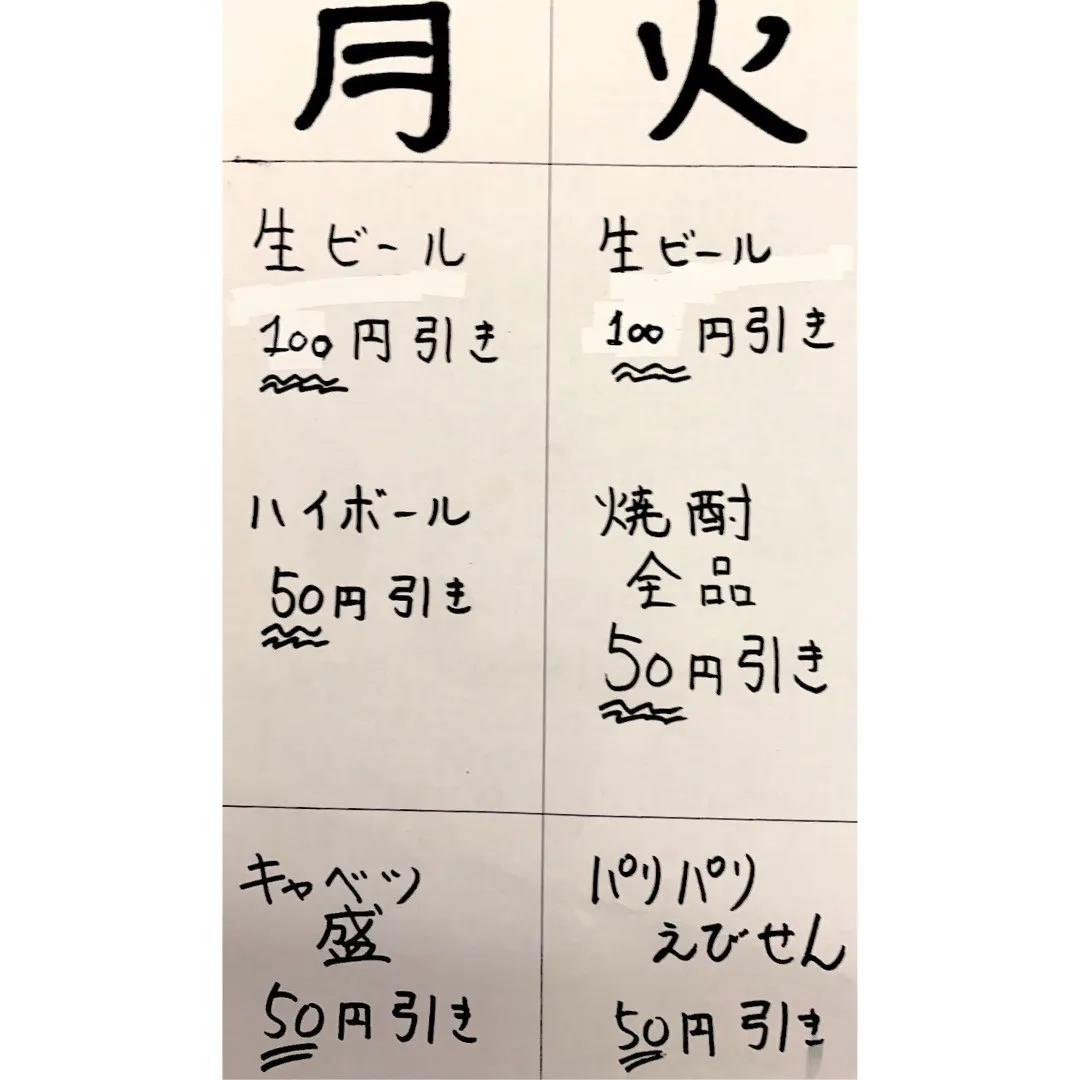 月
生ビール
100円引き
ハイボール
50円引き
キャベツ
盛
50円引き
火
生ビール
100円引き
焼酎
全品
50円引き
パリパリ
えびせん
50円引き